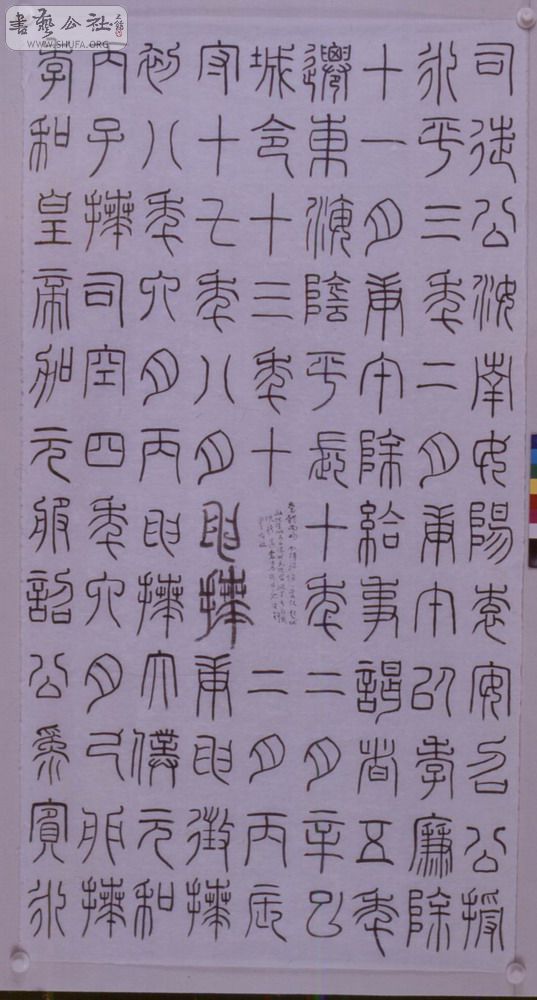 書藝公社
WWW.SHUFA.ORG
司徒公汝南女陽袁安召公授
永平三年二月庚午以孝廉除
十一月庚午除給事謁者五年
遷東海陰平長十年二月辛巳
城令十三年十二月丙辰
守十七年八月申拜庚申徵拜
初八年六月丙申拜太僕元和
丙子拜司空四年六月己卯拜
孝和皇帝加元服詔公為賓永